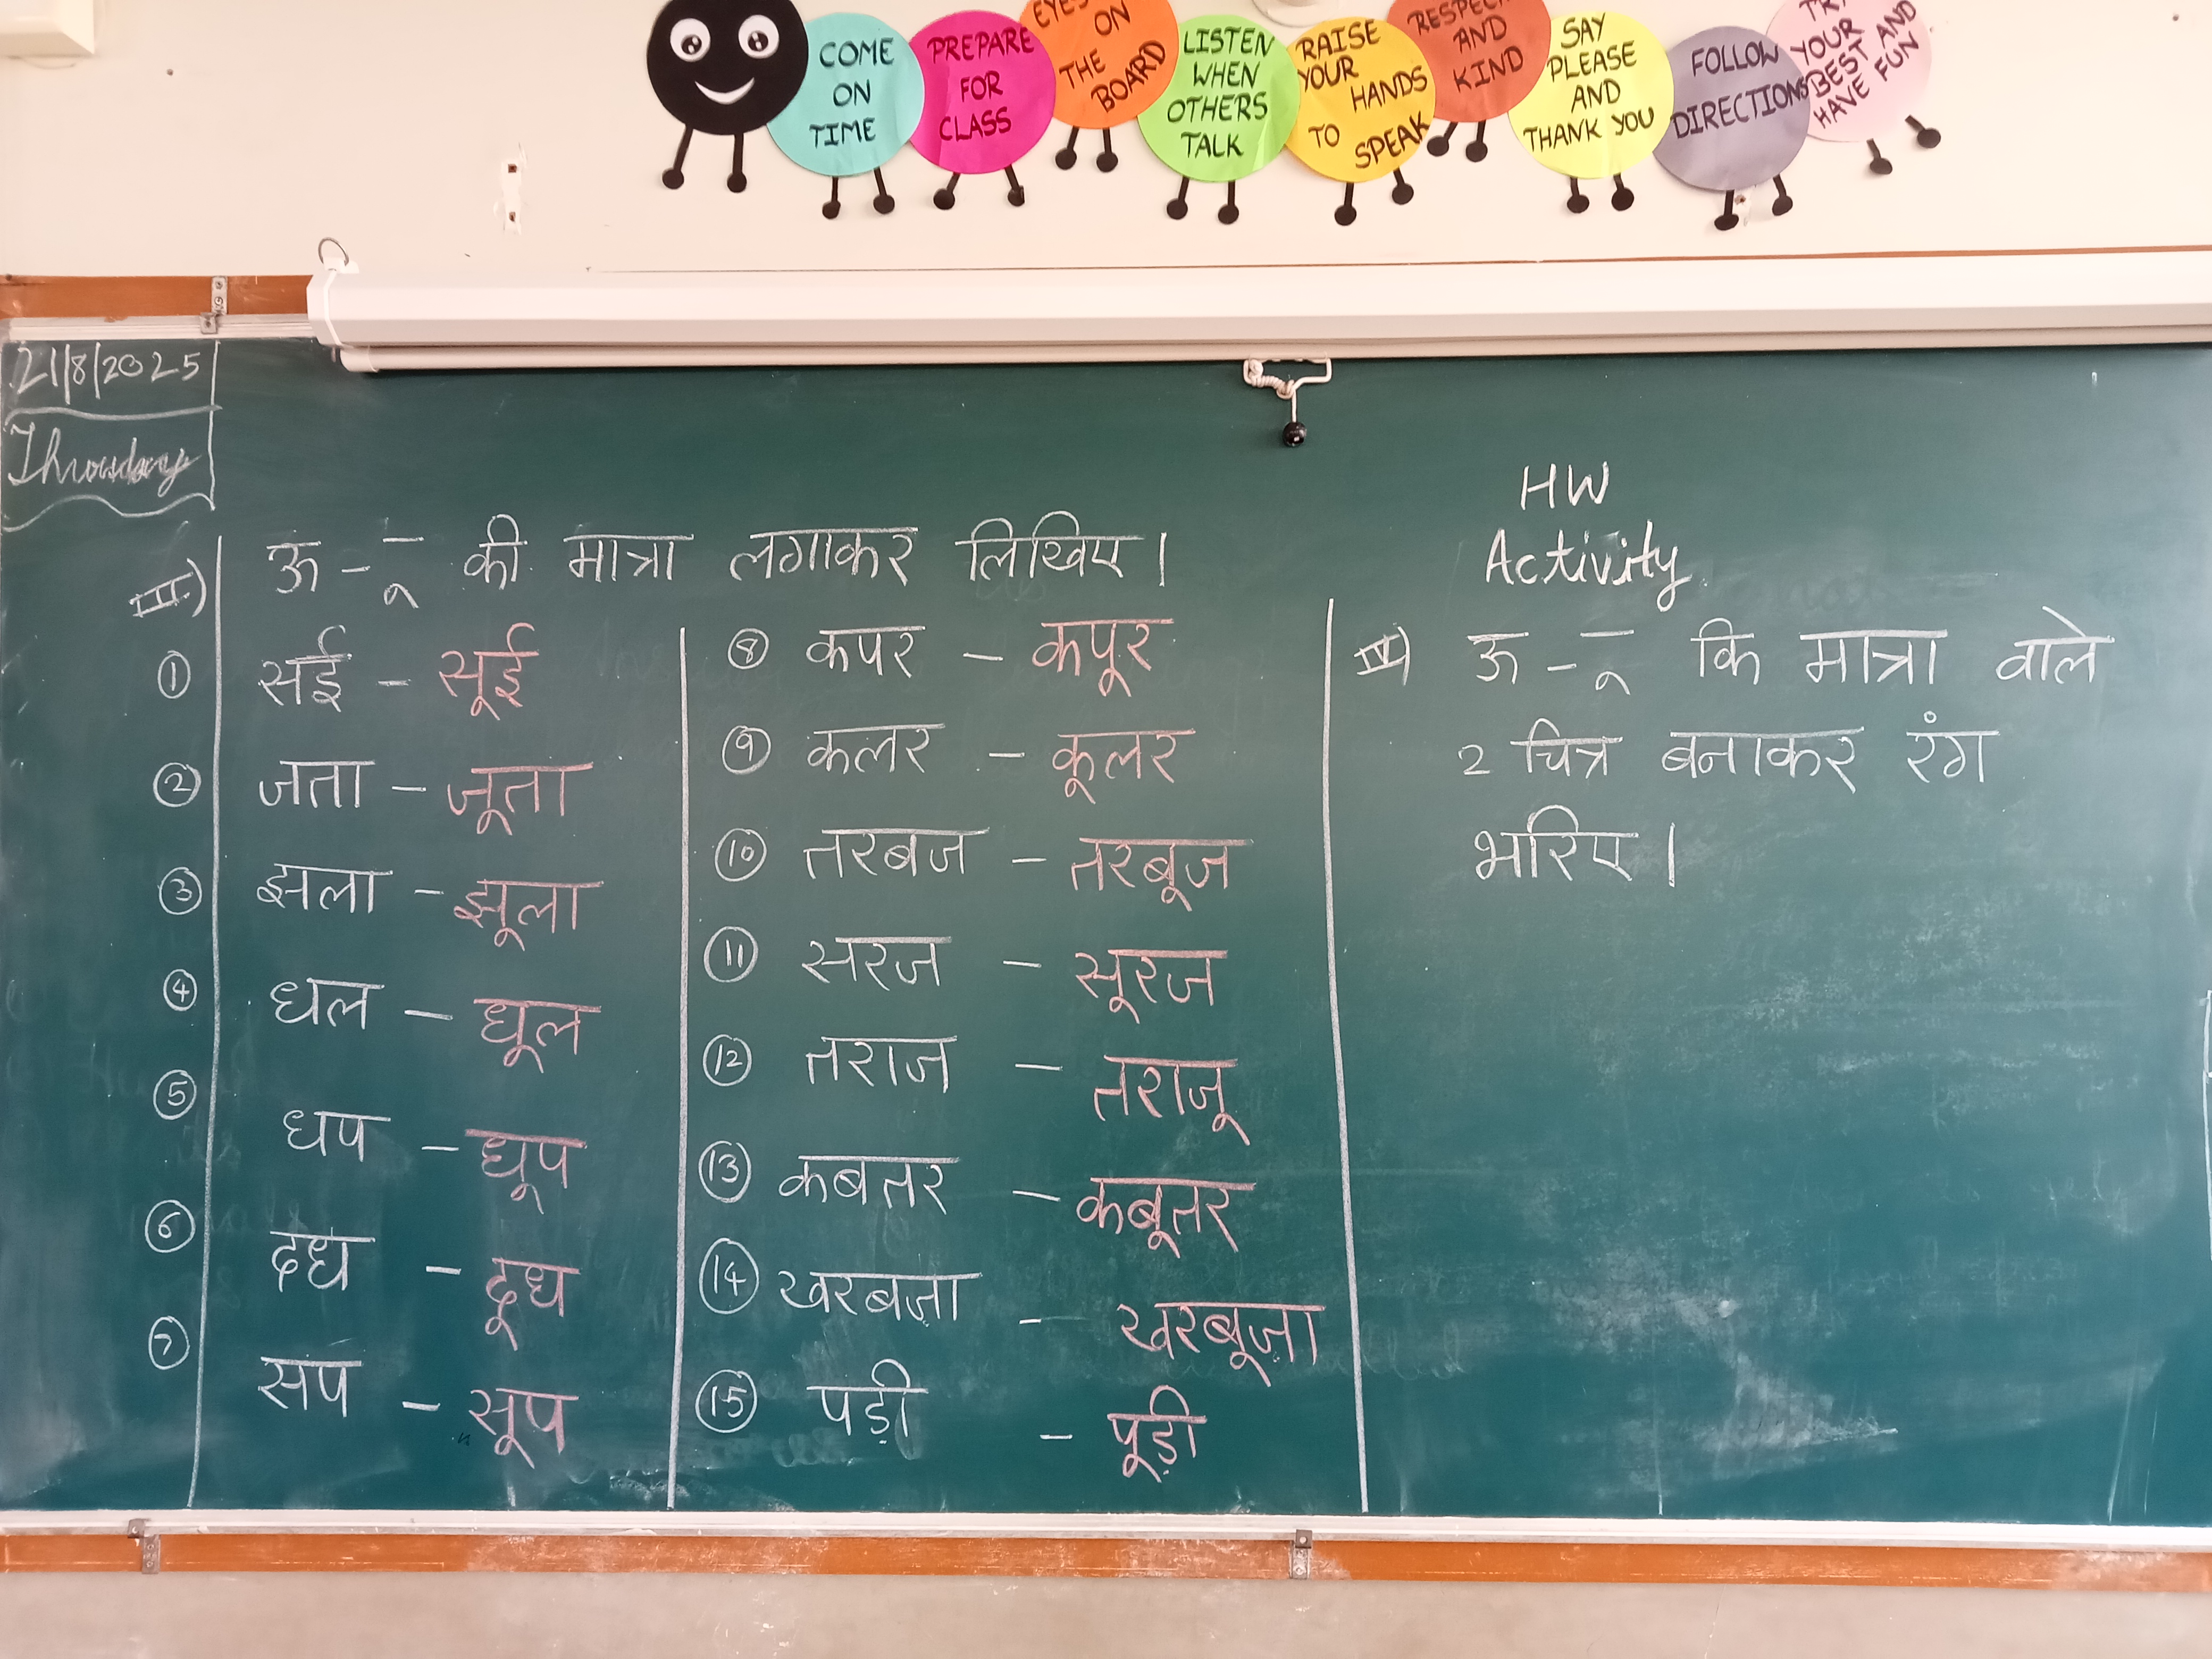 COME
ON
TIME
PREPARE
FOR
CLASS
EYES
ON
THE
BOARD
LISTEN
WHEN
OTHERS
TALK
RAISE
YOUR
HANDS
TO
SPEAK
RESPECT
AND
KIND
SAY
PLEASE
AND
THANK YOU
FOLLOW
DIRECTIONS
TRY
YOUR
BEST AND
HAVE FUN
21/8/2025
Thursday
III) ऊ - ू की मात्रा लगाकर लिखिए।
1 सई - सूई
2 जता - जूता
3 झला - झूला
4 धल - धूल
5 धप - धूप
6 दध - दूध
7 सप - सूप
8 कपर - कपूर
9 कलर - कूलर
10 तरबज - तरबूज
11 सरज - सूरज
12 तराज - तराजू
13 कबतर - कबूतर
14 खरबज़ा - खरबूज़ा
15 पड़ी - पूड़ी
HW
Activity
IV) ऊ - ू कि मात्रा वाले
2 चित्र बनाकर रंग
भरिए।